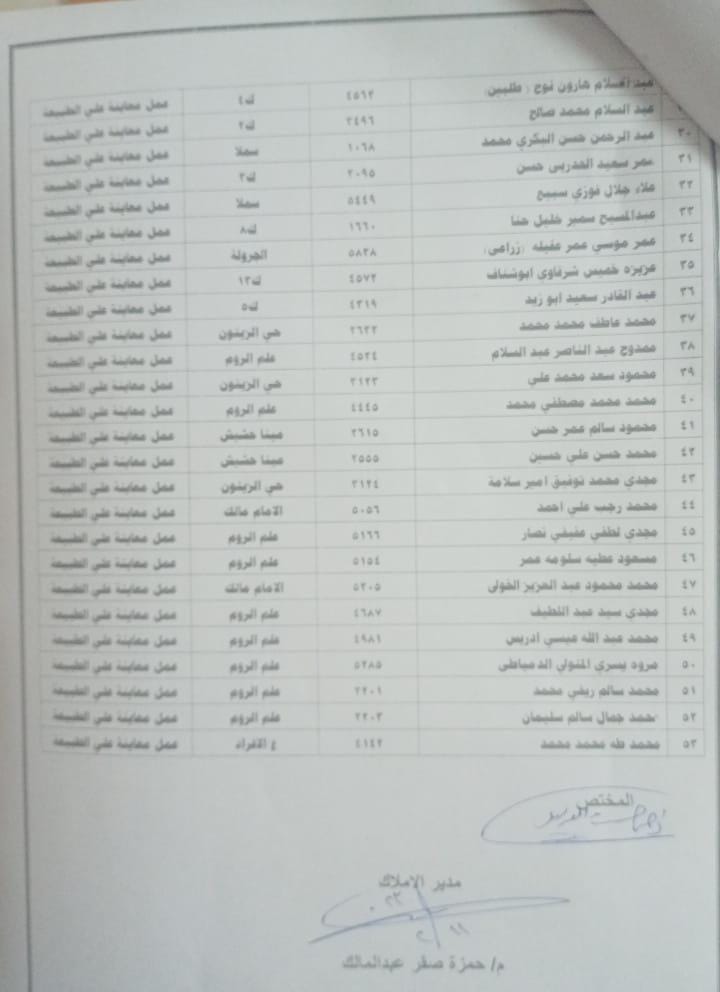 عبد السلام هارون نوح ( طلبين) ٤٥٦٢ ك٤ عمل معاينة علي الطبيعة
عبد السلام محمد صالح ٣٤٩٦ ك٢ عمل معاينة علي الطبيعة
٣٠ عبد الرحمن حسن البكري محمد ١٠٦٨ سملا عمل معاينة علي الطبيعة
٣١ عمر سعيد الحدربى حسن ٣٠٩٥ ك٣ عمل معاينة علي الطبيعة
٣٢ علاء جلال فوزي سبيع ٥٤٤٩ سملا عمل معاينة علي الطبيعة
٣٣ عبدالمسيح سمير خليل حنا ١٦٦٠ ك٨ عمل معاينة علي الطبيعة
٣٤ عمر موسي عمر عقيله (زراعى) ٥٨٣٨ الجرولة عمل معاينة علي الطبيعة
٣٥ عزيزه خميس شرقاوى ابوشناف ٤٥٧٢ ك١٣ عمل معاينة علي الطبيعة
٣٦ عبد القادر سعيد ابو زيد ٤٣١٩ ك٥ عمل معاينة علي الطبيعة
٣٧ محمد عاطف محمد محمد ٢٦٢٢ حي الزيتون عمل معاينة علي الطبيعة
٣٨ ممدوح عبد الناصر عبد السلام ٤٥٢٤ علم الروم عمل معاينة علي الطبيعة
٣٩ محمود سعد محمد علي ٣١٢٣ حي الزيتون عمل معاينة علي الطبيعة
٤٠ محمد محمد مصطفي محمد ٤٤٤٥ علم الروم عمل معاينة علي الطبيعة
٤١ محمود سالم عمر حسن ٢٦١٥ مينا حشيش عمل معاينة علي الطبيعة
٤٢ محمد حسن علي حسين ٢٥٥٥ مينا حشيش عمل معاينة علي الطبيعة
٤٣ مجدي محمد توفيق امير سلامة ٣١٢٤ حي الزيتون عمل معاينة علي الطبيعة
٤٤ محمد رجب علي احمد ٥٠٥٦ الامام مالك عمل معاينة علي الطبيعة
٤٥ مجدي لطفي عفيفي نصار ٥١٦٦ علم الروم عمل معاينة علي الطبيعة
٤٦ مسعود عطيه سلومه عمر ٥١٥٤ علم الروم عمل معاينة علي الطبيعة
٤٧ محمد محمود عبد العزيز الخولى ٥٢٠٥ الامام مالك عمل معاينة علي الطبيعة
٤٨ مجدي سيد عبد اللطيف ٤٦٨٧ علم الروم عمل معاينة علي الطبيعة
٤٩ محمد عبد الله عيسي ادريس ٤٩٨١ علم الروم عمل معاينة علي الطبيعة
٥٠ مروه يسري المتولي الدمياطى ٥٢٨٥ علم الروم عمل معاينة علي الطبيعة
٥١ محمد سالم ريفي محمد ٢٢٠١ علم الروم عمل معاينة علي الطبيعة
٥٢ محمد جمال سالم سليمان ٢٢٠٣ علم الروم عمل معاينة علي الطبيعة
٥٣ محمد طه محمد محمد ٤١٤٢ ع الافراد عمل معاينة علي الطبيعة
المختص
مدير الاملاك
م/ حمزة صقر عبدالمالك